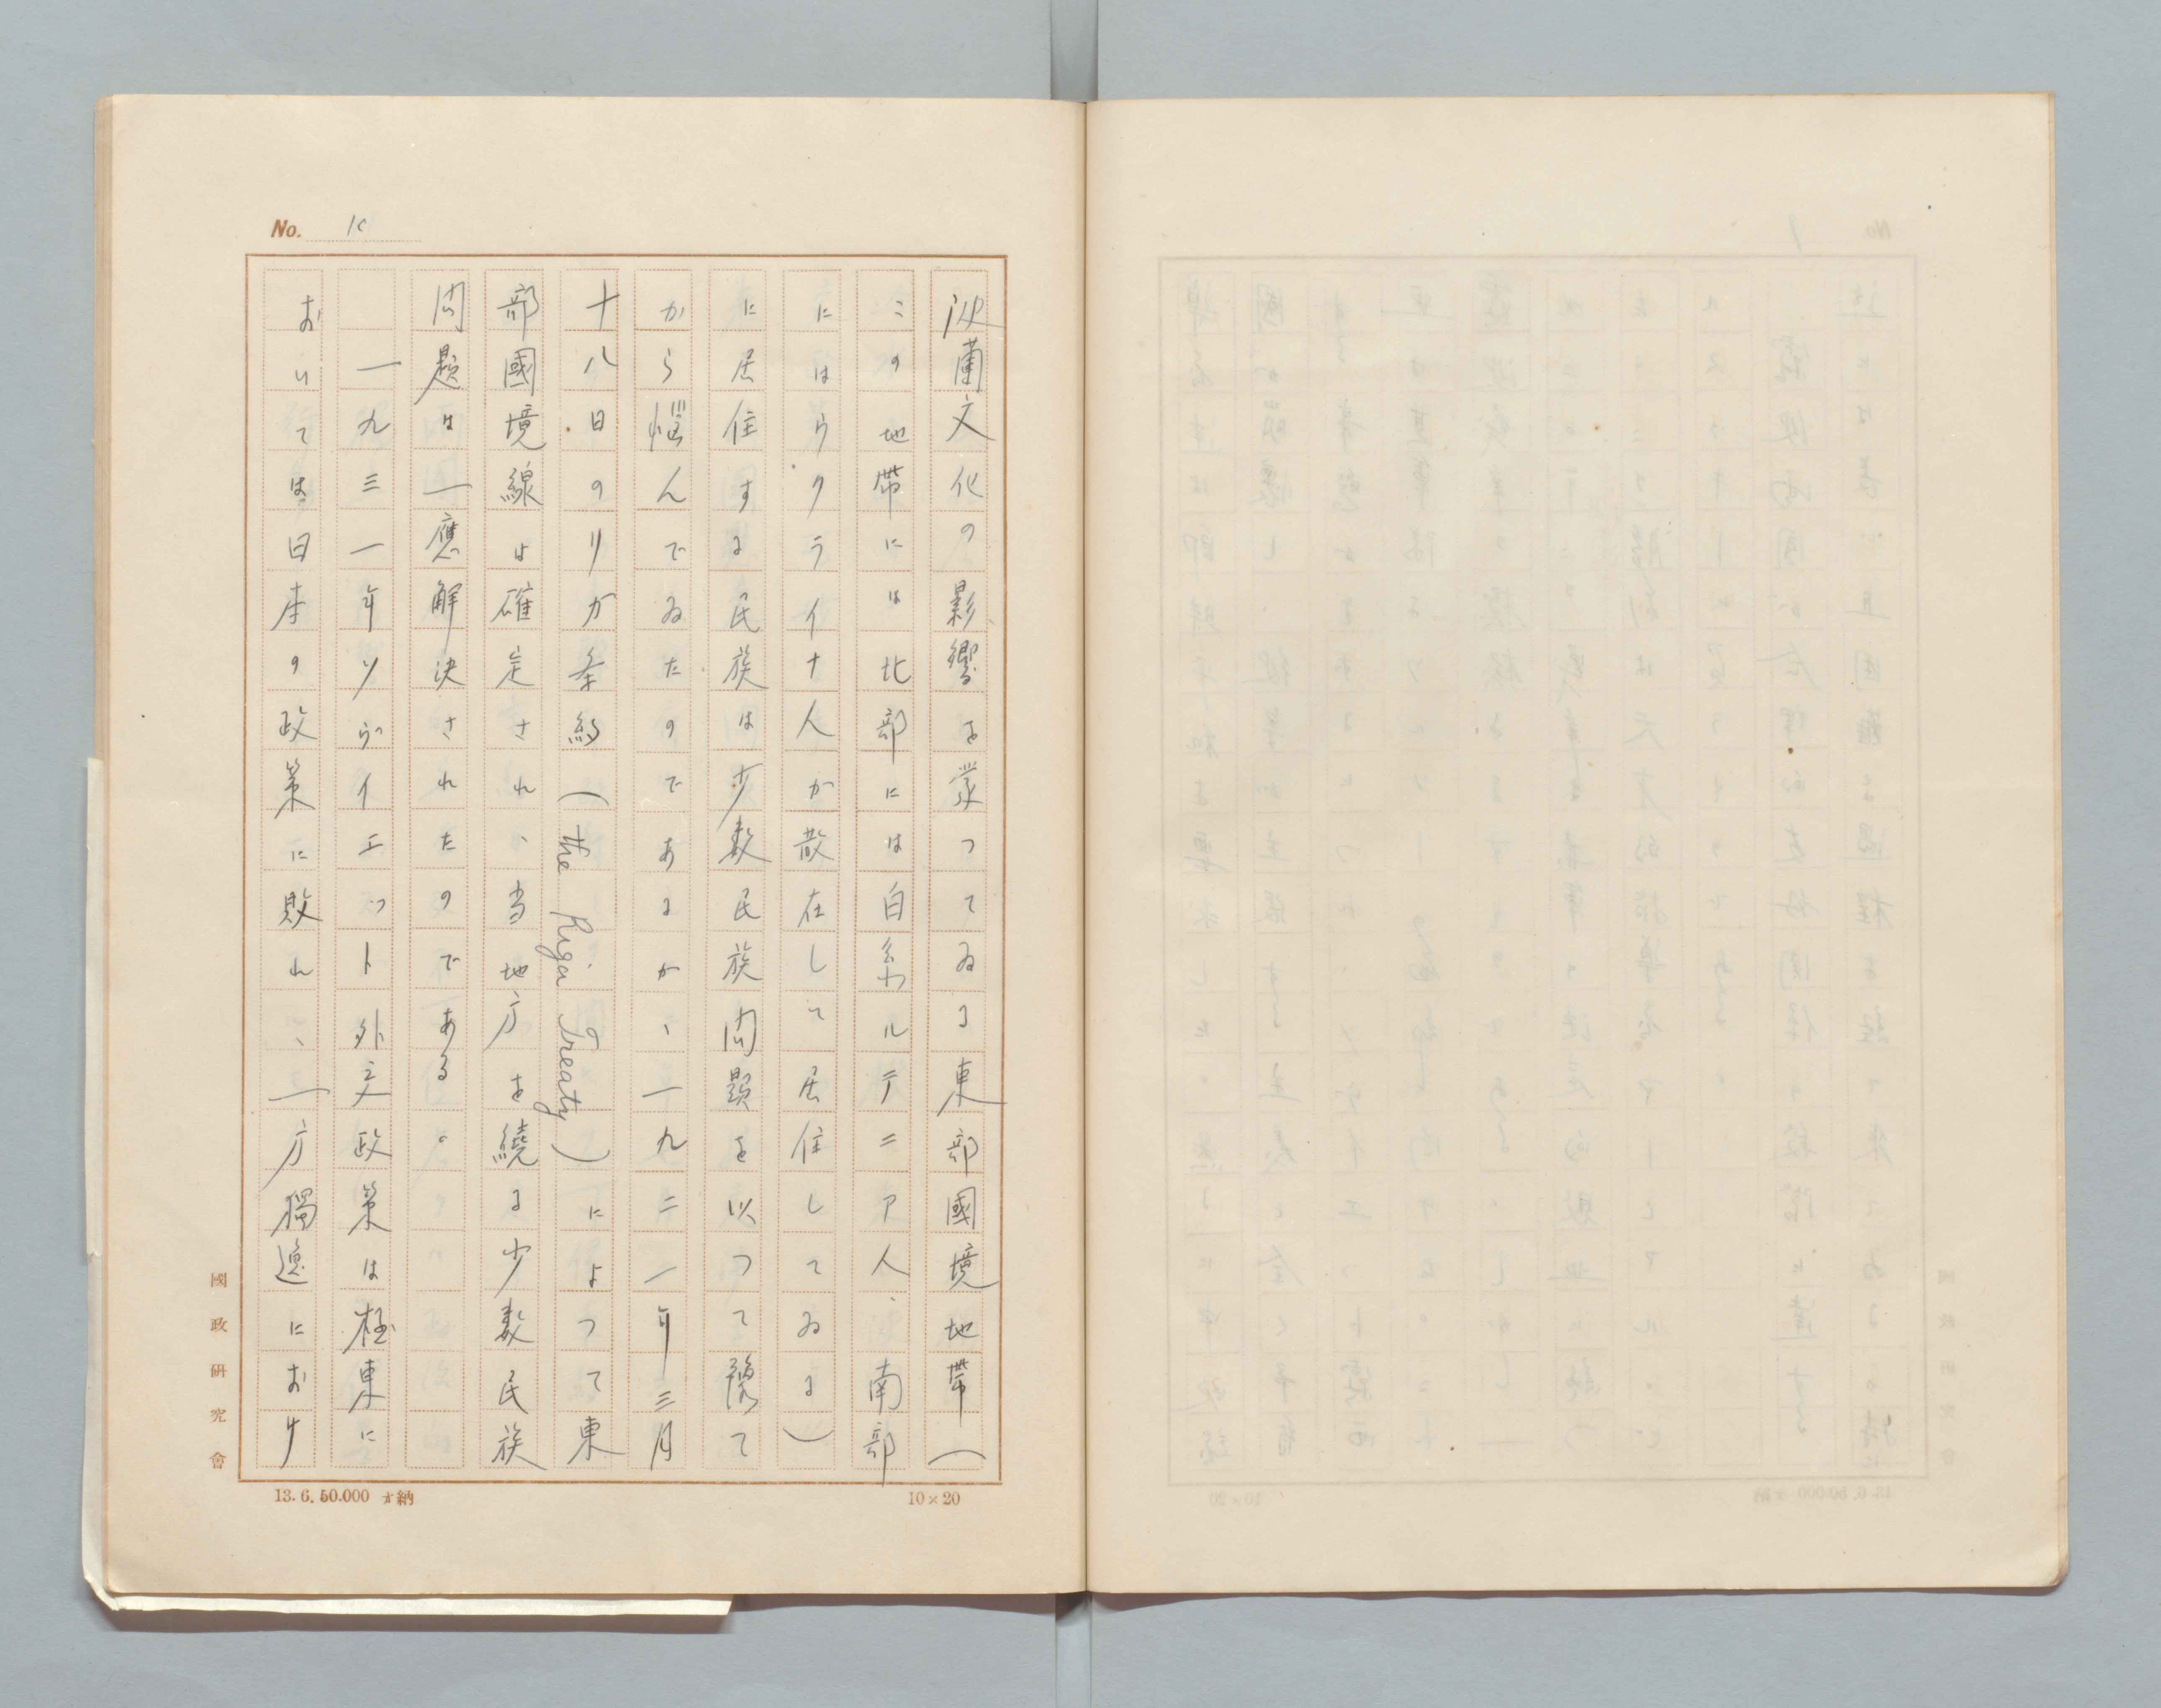 No. 10
波蘭文化の影響を蒙つてゐる東部國境地帶(
この地帶には北部には白系ルテニア人、南部
にはウクライナ人が散在して居住してゐる)
に居住する民族は少数民族問題を以つて豫て
から悩んでゐたのであるが、一九二一年三月
十八日のリガ条約(the Riga Treaty)によつて東
部國境線は確定され、当地方を繞る少数民族
問題は一應解決されたのである。
一九三一年ソヴイエット外交政策は極東に
おいては日本の政策に敗れ、一方獨逸におけ
國政研究會
13.6.50.000 納
10×20